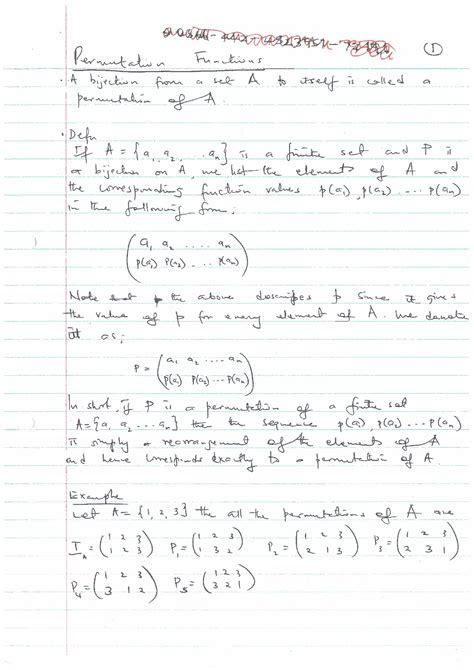 ①
Permutation Functions
· A bijection from a set A to itself is called a
permutation of A.
· Defn
If A = {a₁, a₂, ... aₙ} is a finite set and P is
a bijection on A, we list the elements of A and
the corresponding function values p(a₁), p(a₂) ... p(aₙ)
in the following form;
( a₁ a₂ .... aₙ )
( p(a₁) p(a₂) ... p(aₙ) )
Note the above describes p since it gives
the value of p for every element of A. We denote
it as;
P = ( a₁ a₂ ..... aₙ )
( p(a₁) p(a₂) ... p(aₙ) )
In short, if P is a permutation of a finite set
A = {a₁ a₂ ... aₙ} then the sequence p(a₁), p(a₂) ... p(aₙ)
is simply a rearrangement of the elements of A
and hence corresponds exactly to a permutation of A.
Example
Let A = {1, 2, 3} the all the permutations of A are
I_A = ( 1 2 3 ) P₁ = ( 1 2 3 ) P₂ = ( 1 2 3 ) P₃ = ( 1 2 3 )
( 1 2 3 ) ( 1 3 2 ) ( 2 1 3 ) ( 2 3 1 )
P₄ = ( 1 2 3 ) P₅ = ( 1 2 3 )
( 3 1 2 ) ( 3 2 1 )